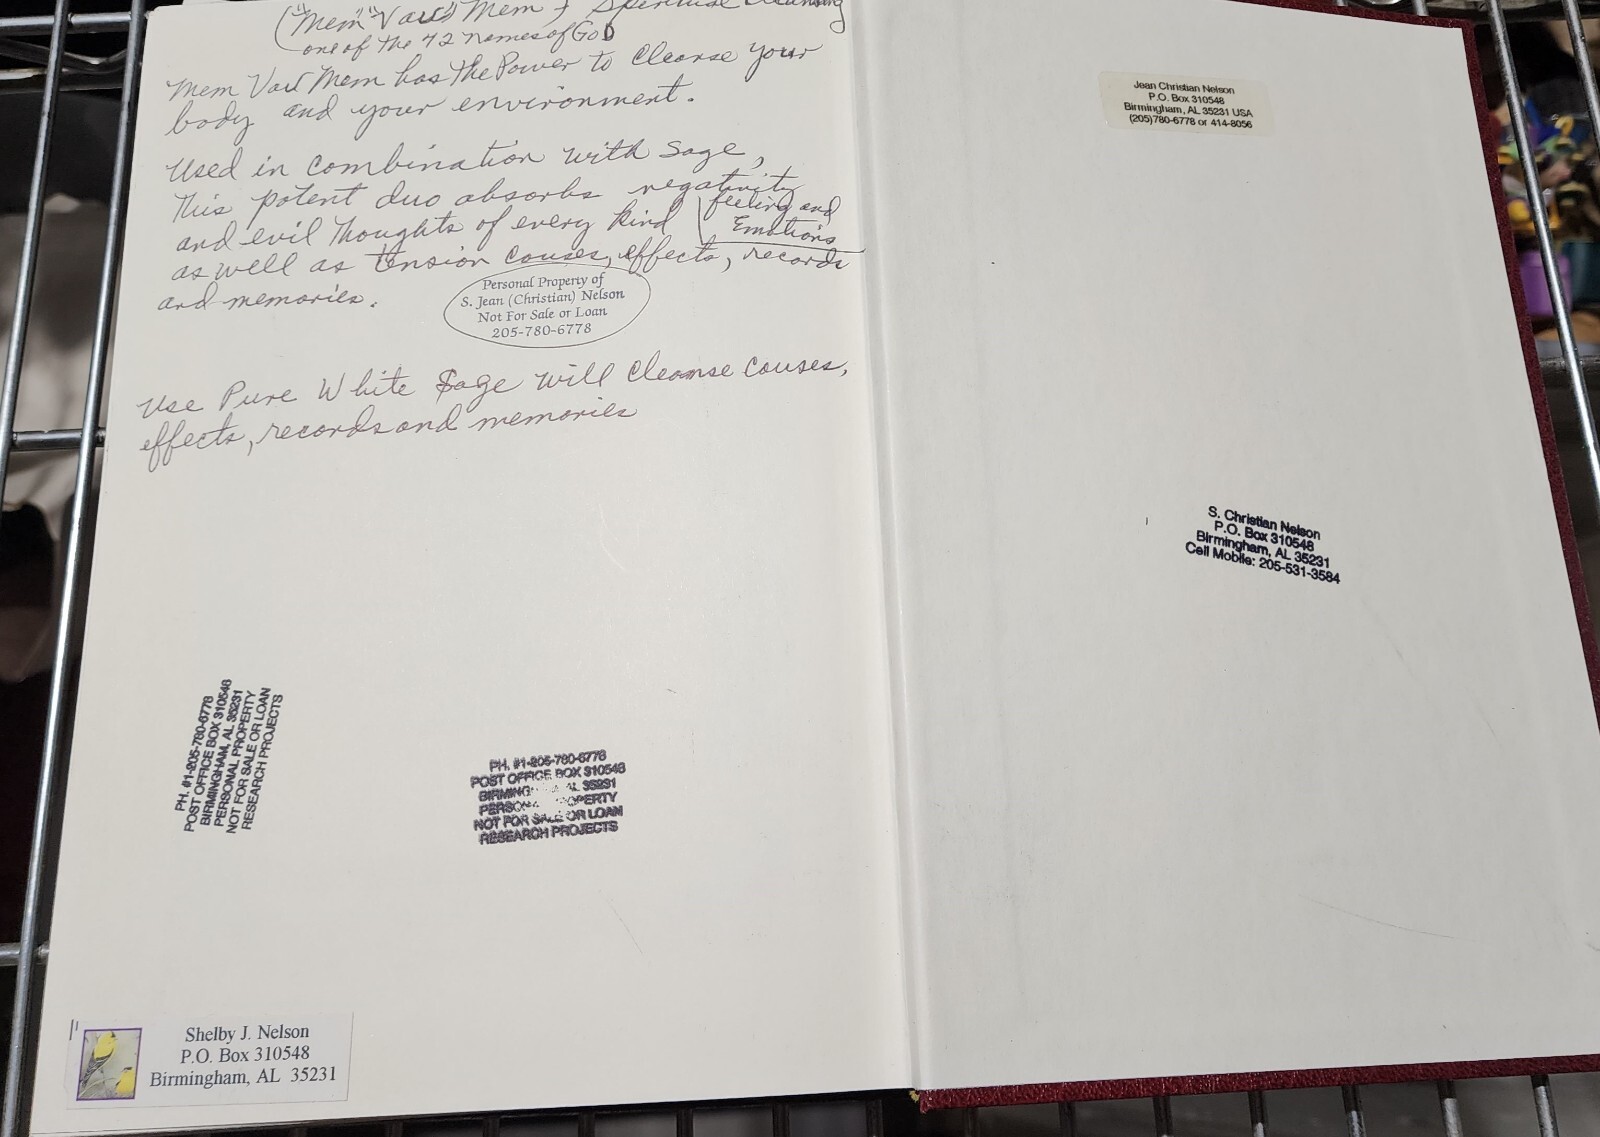 ("Mem" "Vav" Mem } Spiritual Cleansing
one of the 72 names of GoD
Mem Vav Mem has the Power to Cleanse your
body and your environment.
Used in combination with sage,
This potent duo absorbs negativity
and evil thoughts of every kind feeling and
Emotions
as well as tension causes, effects, records
and memories.
Personal Property of
S. Jean (Christian) Nelson
Not For Sale or Loan
205-780-6778
Use Pure White Sage will cleanse causes,
effects, records and memories
PH. #1-205-780-6778
POST OFFICE BOX 310548
BIRMINGHAM, AL 35231
PERSONAL PROPERTY
NOT FOR SALE OR LOAN
RESEARCH PROJECTS
PH. #1-205-780-6778
POST OFFICE BOX 310548
BIRMING AL 35231
PERSON OPERTY
NOT FOR SALE OR LOAN
RESEARCH PROJECTS
Shelby J. Nelson
P.O. Box 310548
Birmingham, AL 35231
Jean Christian Nelson
P.O. Box 310548
Birmingham, AL 35231 USA
(205)780-6778 or 414-8056
S. Christian Nelson
P.O. Box 310548
Birmingham, AL 35231
Cell Mobile: 205-531-3584